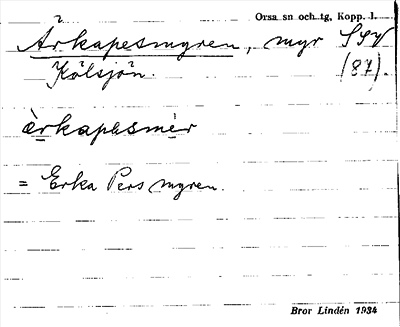 Orsa sn och tg, Kopp. l.
Ärkapesmyren, myr SSV
Kölsjön. (87).
ærkapesmèr
= Erka Pers myren.
Bror Lindén 1934